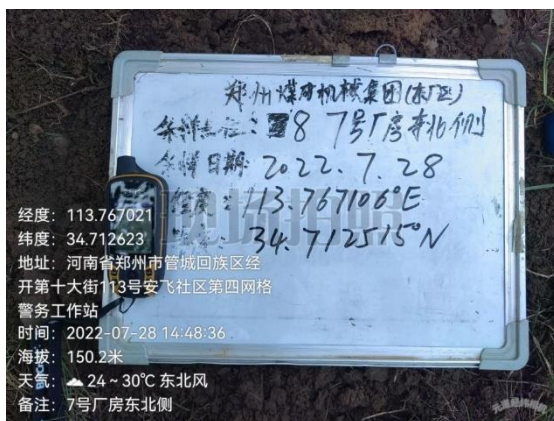 郑州煤矿机械集团(东厂区)
采样点位:8 7号厂房东北侧
采样日期:2022.7.28
经度:113.767106°E
34.712515°N
现场拍照
经度:113.767021
纬度:34.712623
地址:河南省郑州市管城回族区经
开第十大街113号安飞社区第四网格
警务工作站
时间:2022-07-28 14:48:36
海拔:150.2米
天气:☁ 24~30℃ 东北风
备注:7号厂房东北侧